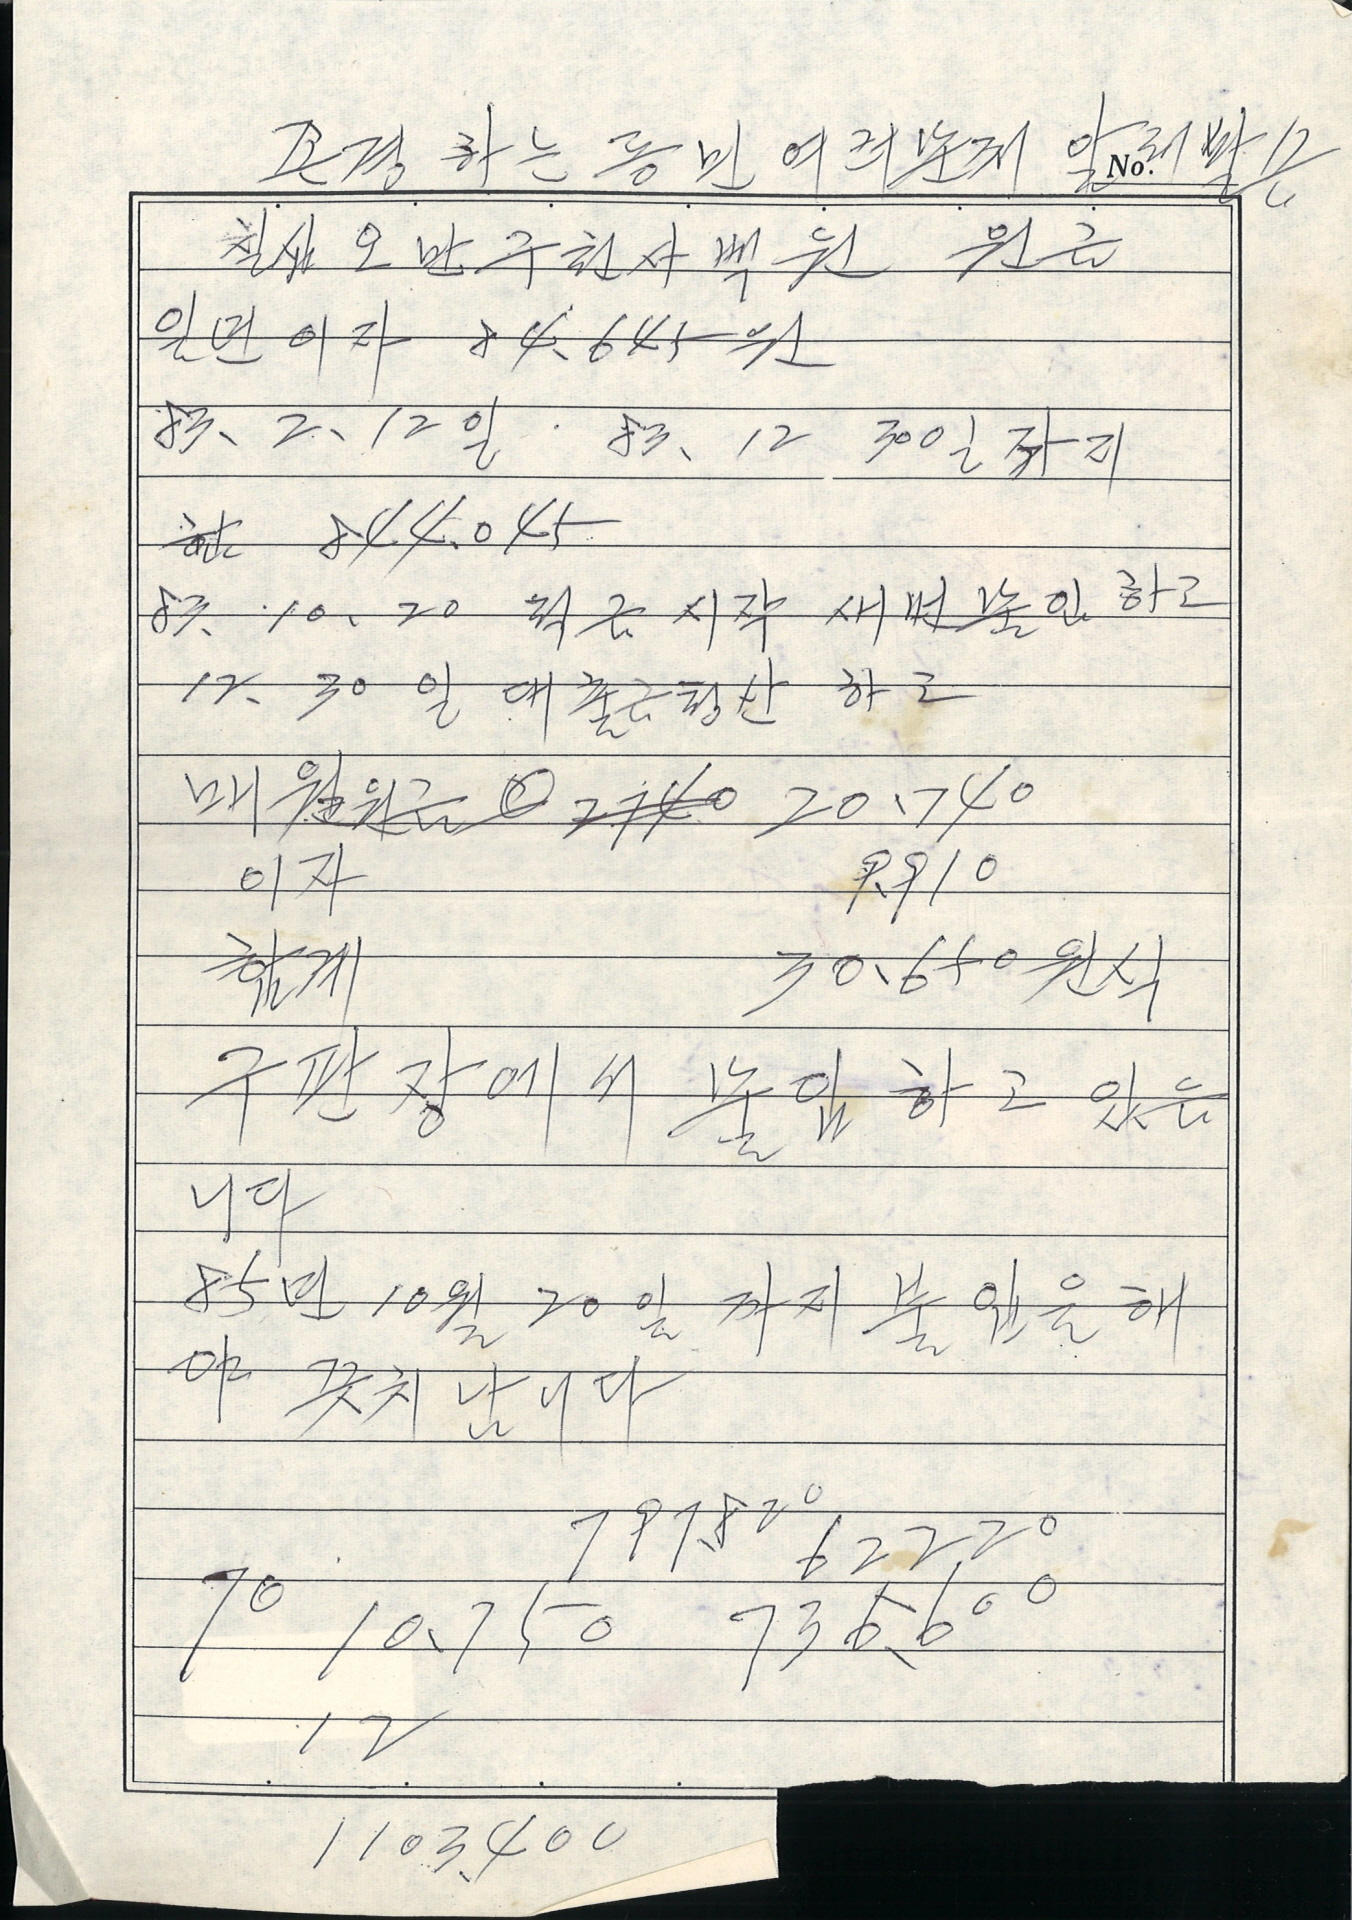 존경 하는 동민 여러분께 알려 발
No.
칠십 오만 구천 사백 원 원금
일년 이자 84.645원
83. 2. 12일 · 83. 12 30일 까지
합 844.045
83. 10. 20 적금 시작 세번 불입 하고
12. 30 일 대출금 청산 하고
매월 원금 20.740
이자 9.910
합계 30.650원식
구판장에서 불입 하고 있슴
니다
85년 10월 20일 까지 불입을 해
야 끗치 납니다
797.820 62220
70 10.750 735.600
12
1103.400